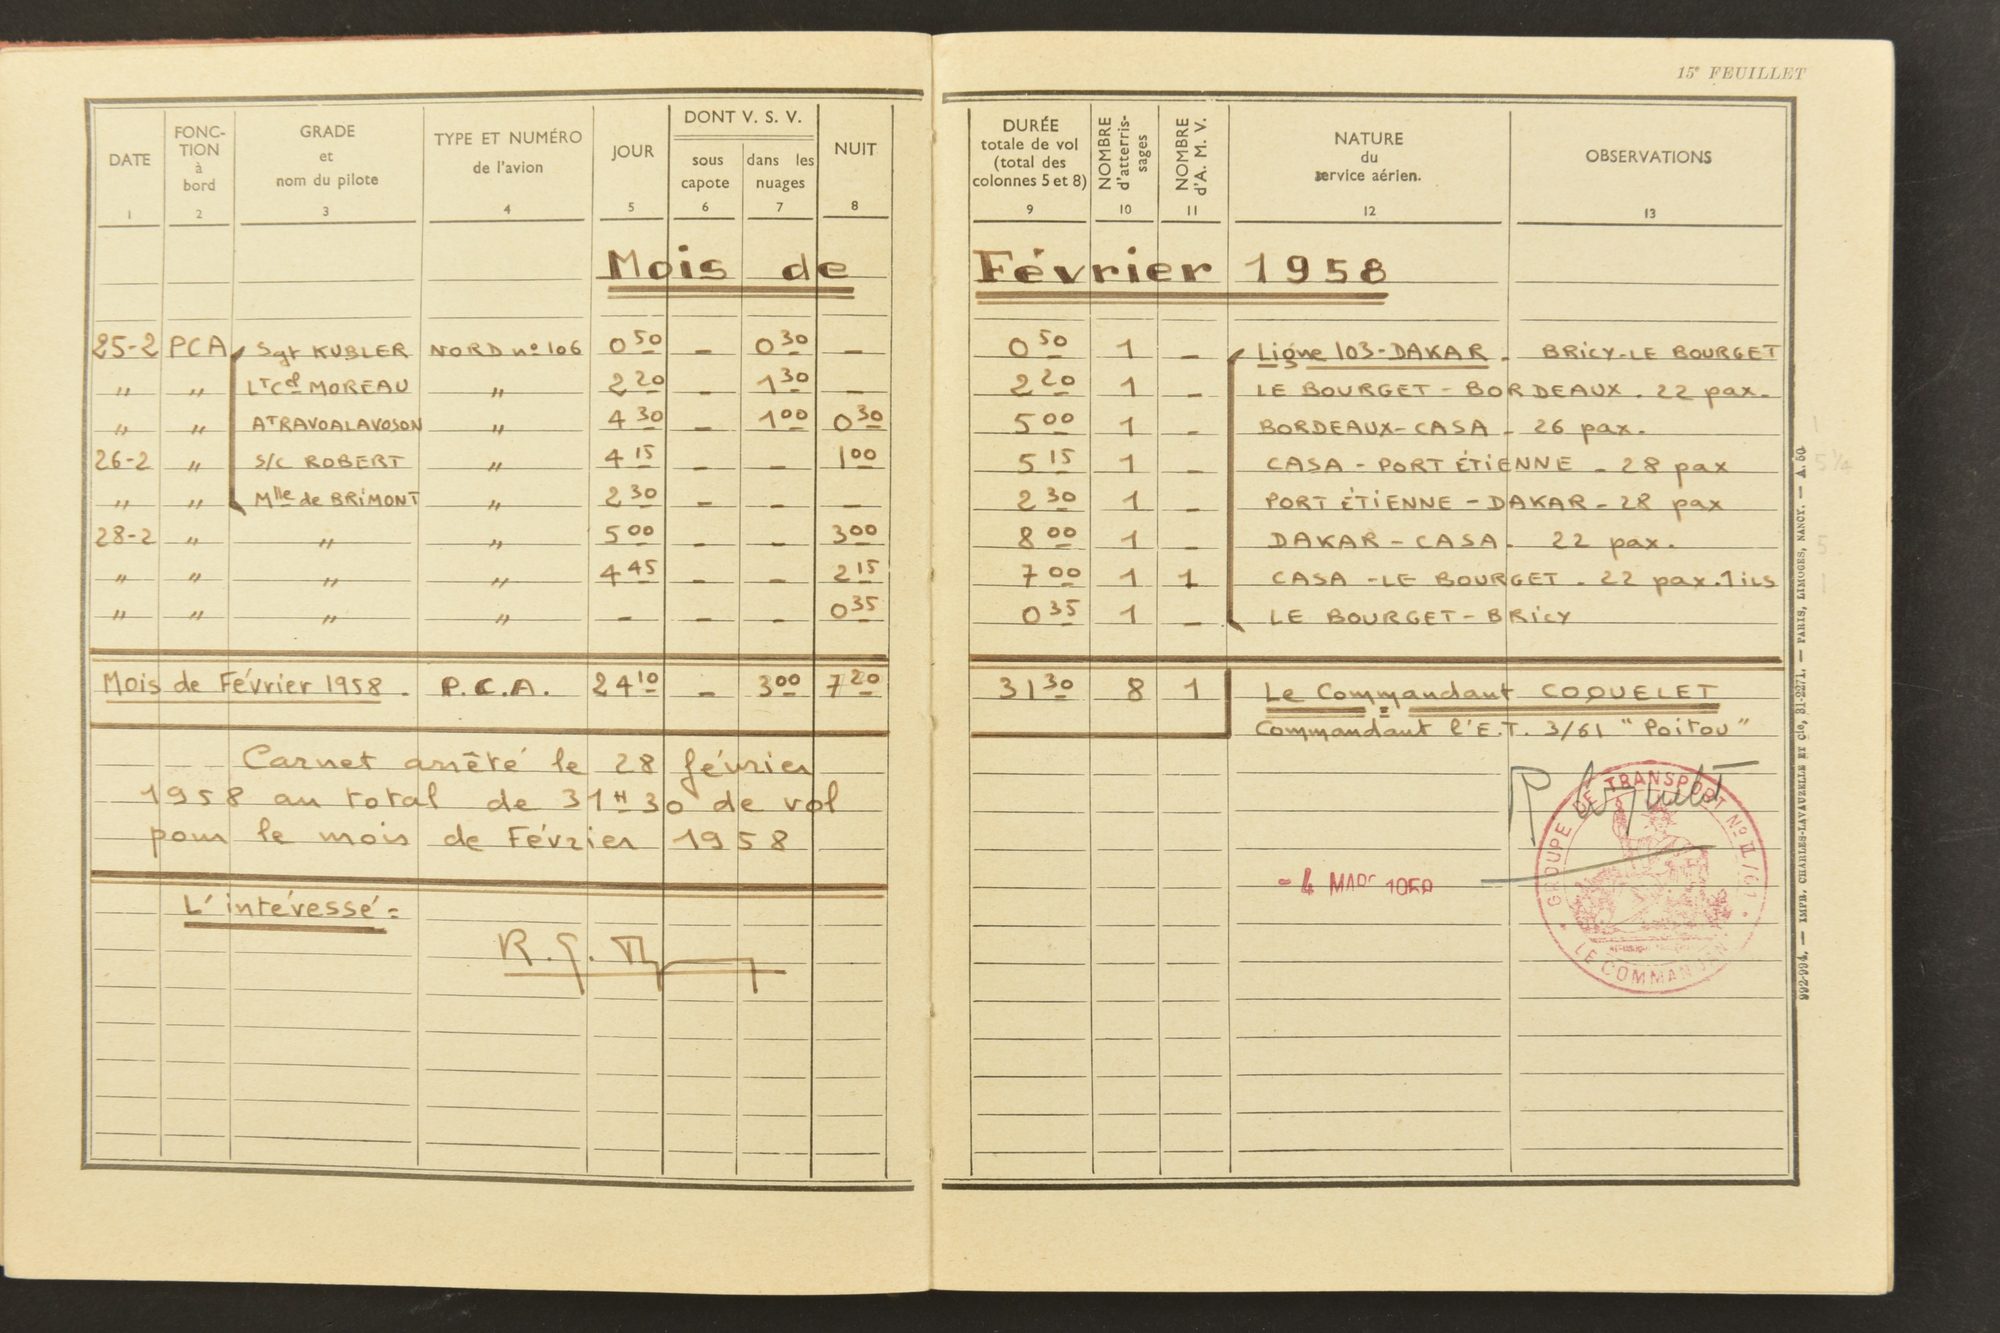 15e FEUILLET
DATE FONC-TION à bord GRADE et nom du pilote TYPE ET NUMÉRO de l'avion JOUR DONT V. S. V. sous capote dans les nuages NUIT DURÉE totale de vol (total des colonnes 5 et 8) NOMBRE d'atterris-sages NOMBRE d'A. M. V. NATURE du service aérien. OBSERVATIONS
1 2 3 4 5 6 7 8 9 10 11 12 13
Mois de Février 1958
25-2 PCA Sgt KUBLER NORD nº 106 0 50 - 0 30 - 0 50 1 - Ligne 103-DAKAR - BRICY-LE BOURGET
" " LT Cel MOREAU " 2 20 - 1 30 - 2 20 1 - LE BOURGET - BORDEAUX . 22 pax.
" " AT RAVOALAVOSON " 4 30 - 1 00 0 30 5 00 1 - BORDEAUX-CASA - 26 pax.
26-2 " S/C ROBERT " 4 15 - - 1 00 5 15 1 - CASA - PORT ÉTIENNE - 28 pax
" " Mlle de BRIMONT " 2 30 - - - 2 30 1 - PORT ÉTIENNE - DAKAR - 28 pax
28-2 " " " 5 00 - - 3 00 8 00 1 - DAKAR - CASA . 22 pax.
" " " " 4 45 - - 2 15 7 00 1 1 CASA - LE BOURGET . 22 pax. 1 ils
" " " " - - - 0 35 0 35 1 - LE BOURGET - BRICY
Mois de Février 1958 . P.C.A. 24 10 - 3 00 7 20 31 30 8 1 Le Commandant COQUELET
Commandant l'E.T. 3/61 "Poitou"
Carnet arrêté le 28 février
1958 au total de 31 H 30 de vol
pour le mois de Février 1958
L'intéressé :
- 4 MARS 1958
GROUPE DE TRANSPORT No II/61
LE COMMANDANT
992-994. — IMPR. CHARLES-LAVAUZELLE ET Cie, 31-2271. — PARIS, LIMOGES, NANCY. — A. 50